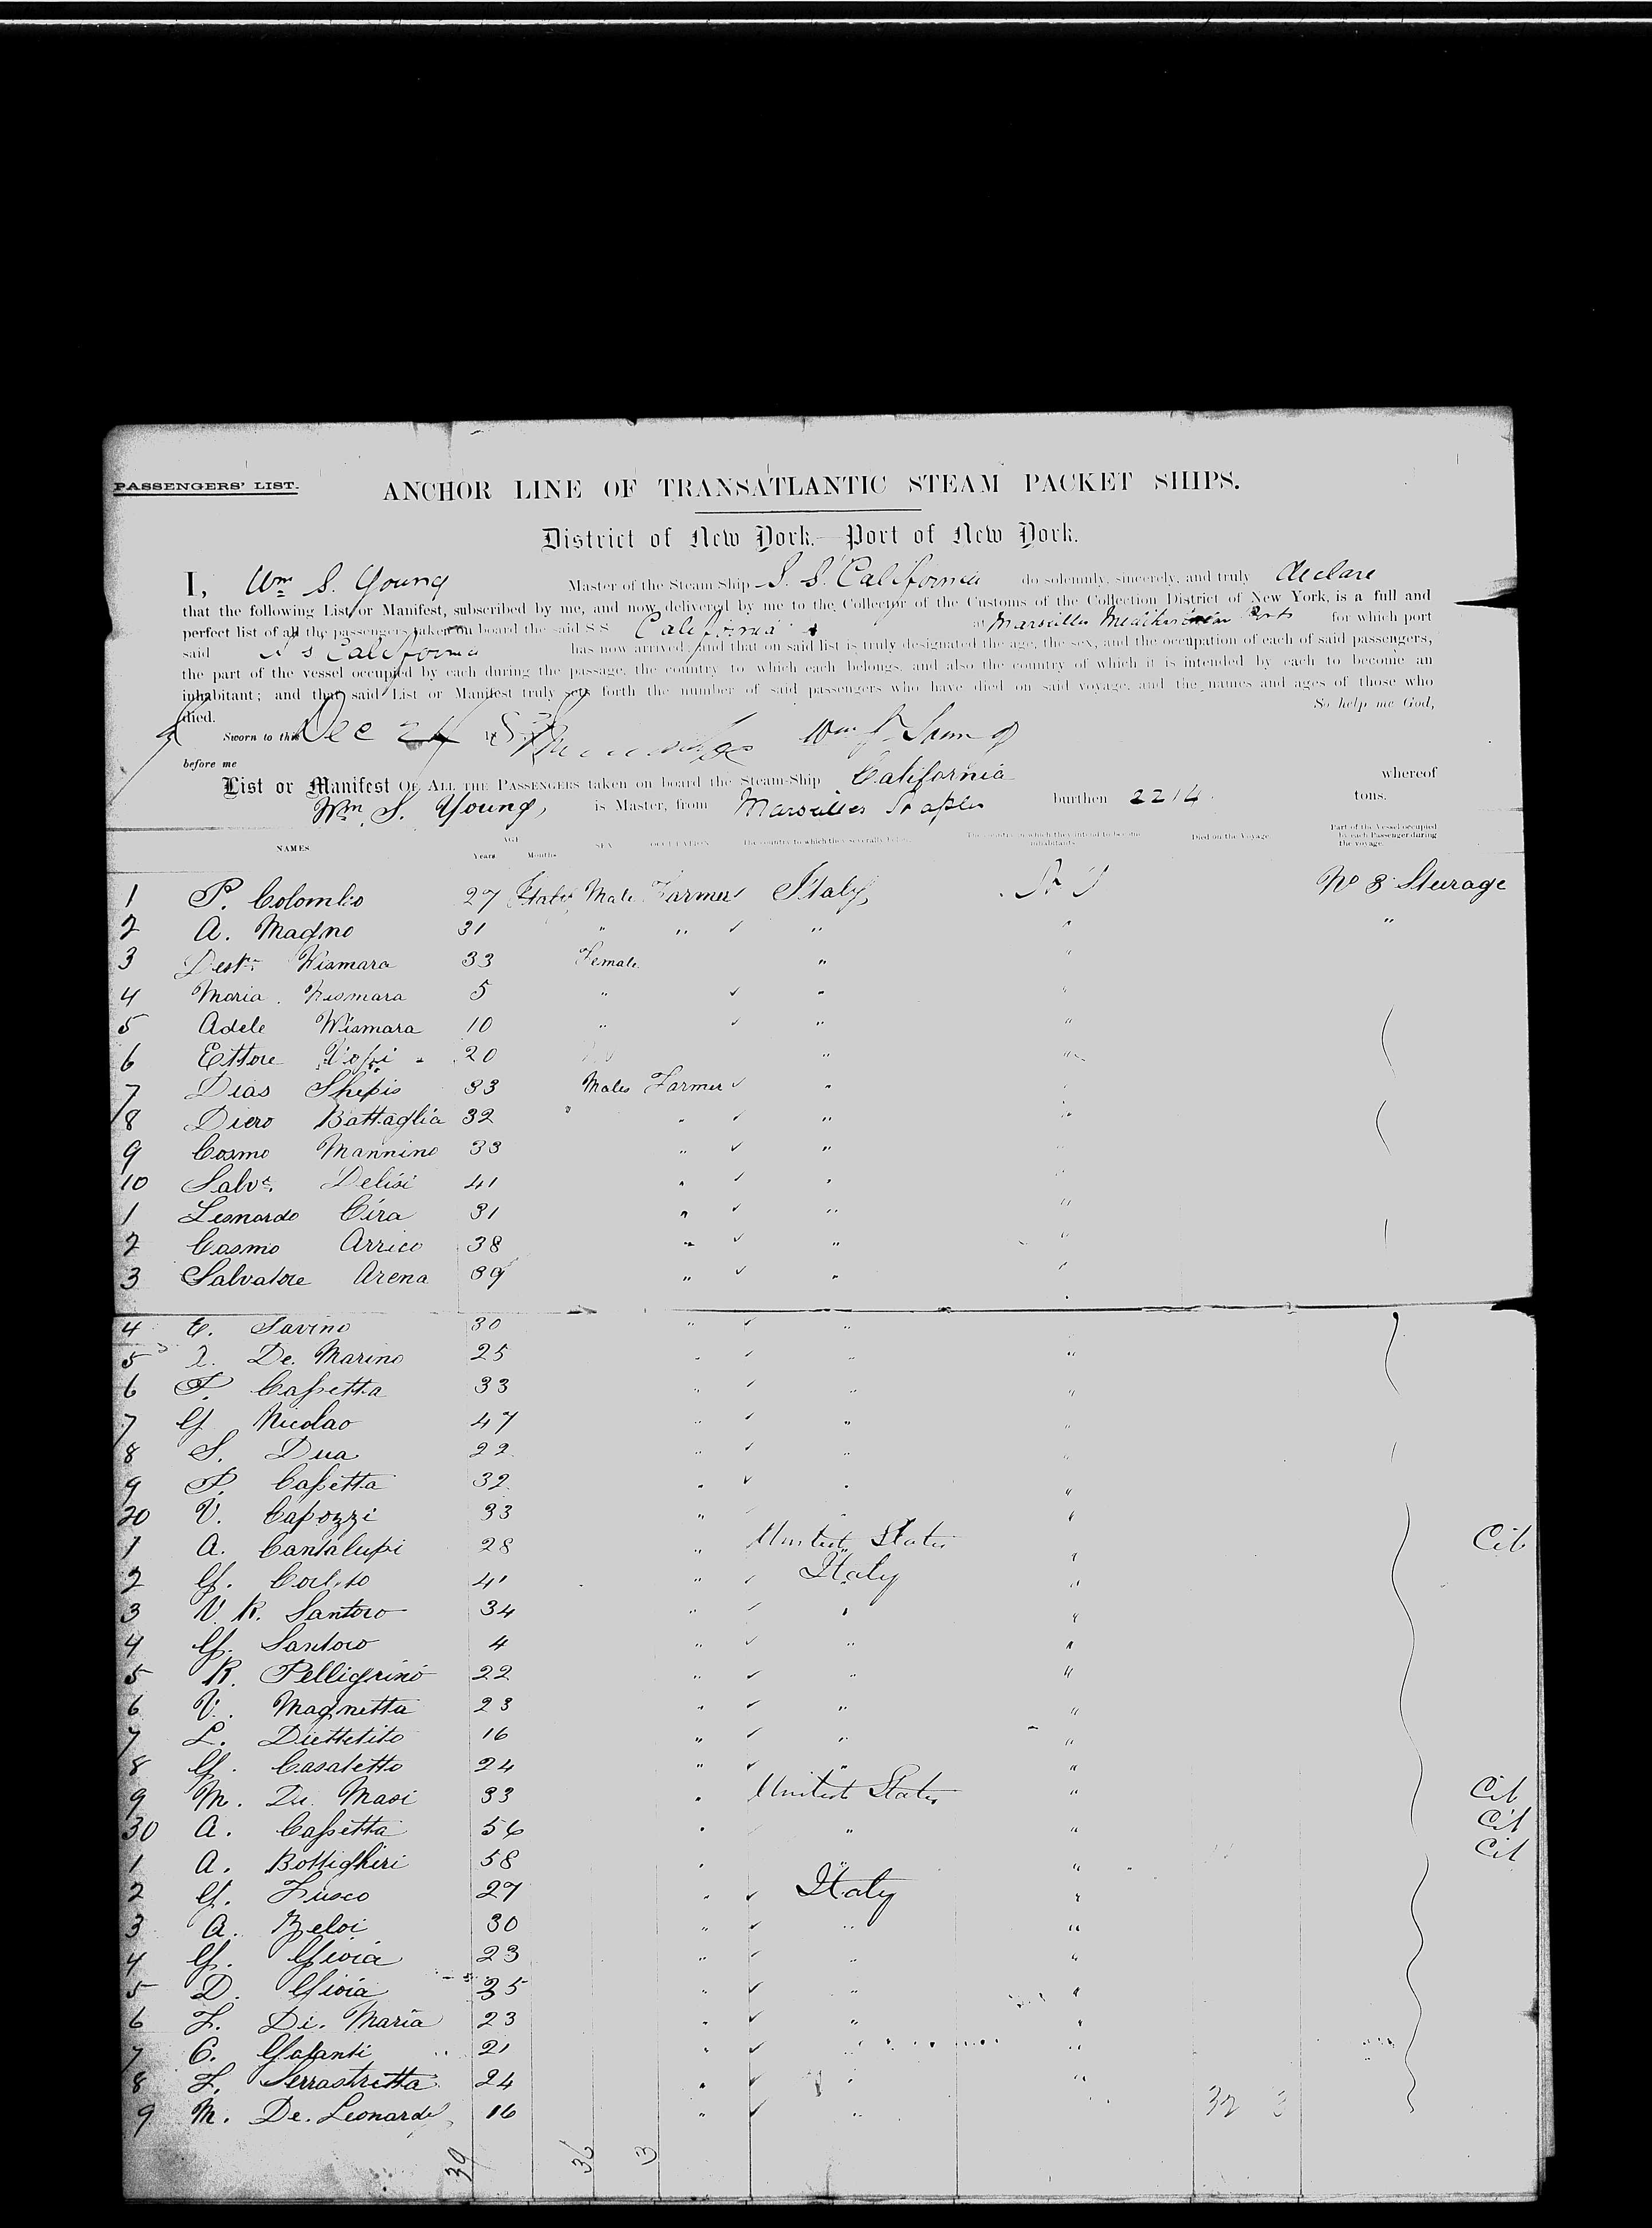 PASSENGERS' LIST.
ANCHOR LINE OF TRANSATLANTIC STEAM PACKET SHIPS.
District of New York.—Port of New York.
I, Wm S. Young Master of the Steam Ship S. S. California do solemnly, sincerely, and truly declare
that the following List or Manifest, subscribed by me, and now delivered by me to the Collector of the Customs of the Collection District of New York, is a full and
perfect list of all the passengers taken on board the said S S California at Marseilles Ports for which port
said S S California has now arrived, and that on said list is truly designated the age, the sex, and the occupation of each of said passengers,
the part of the vessel occupied by each during the passage, the country to which each belongs, and also the country of which it is intended by each to become an
inhabitant; and that said List or Manifest truly sets forth the number of said passengers who have died on said voyage, and the names and ages of those who
died. So help me God,
Sworn to this Dec
before me
List or Manifest OF ALL THE PASSENGERS taken on board the Steam-Ship California whereof
Wm. S. Young, is Master, from Marseilles Naples burthen 2214 tons.
NAMES AGE Years Months SEX OCCUPATION The country to which they severally belong The country in which they intend to become inhabitants Died on the Voyage Part of the Vessel occupied by each Passenger during the voyage.
1 P. Colombo 27 Italy Male Farmer Italy No 3 Steurage
2 A. Magno 31 " " " " "
3 Wismara 33 Female " "
4 Maria Wismara 5 " " "
5 Adele Wismara 10 " " "
6 Ettore 20 " "
7 Dias Shepis 33 Males Farmer " "
8 Diero Battaglia 32 " " "
9 Cosmo Mannino 33 " " "
10 Salve. Delisi 41 " " "
1 Leonardo Cira 31 " " "
2 Casmo Arrico 38 " " "
3 Salvatore Arena 39 " " "
4 C. Savino 30 " " "
5 De. Marino 25 " " "
6 F. Capetta 33 " " "
7 G Nicolao 47 " " "
8 S. Dua 22 " " "
9 P. Capetta 32 " " "
20 V. Capozzi 33 " " "
1 A. Cantalupi 28 " United States " Cit
2 G. 41 " Italy "
3 V. R. Santoro 34 " " "
4 G. Santoro 4 " " "
5 R. Pelligrino 22 " " "
6 V. Magnetta 23 " " "
7 L. Diettetito 16 " " "
8 G. Casaletto 24 " " "
9 M. De Masi 33 " United States " Cit
30 A. Capetta 56 " " " Cit
1 A. Bottigheri 58 " " " Cit
2 G. Fusco 27 " Italy "
3 A. Beloi 30 " " "
4 G. Gioia 23 " " "
5 D. Gioia 35 " " "
6 F. Di. Maria 23 " " "
7 C. Galanti 21 " " "
8 F. Serrastretta 24 " " "
9 M. De. Leonardo 16 " "
32 3
39 36 3